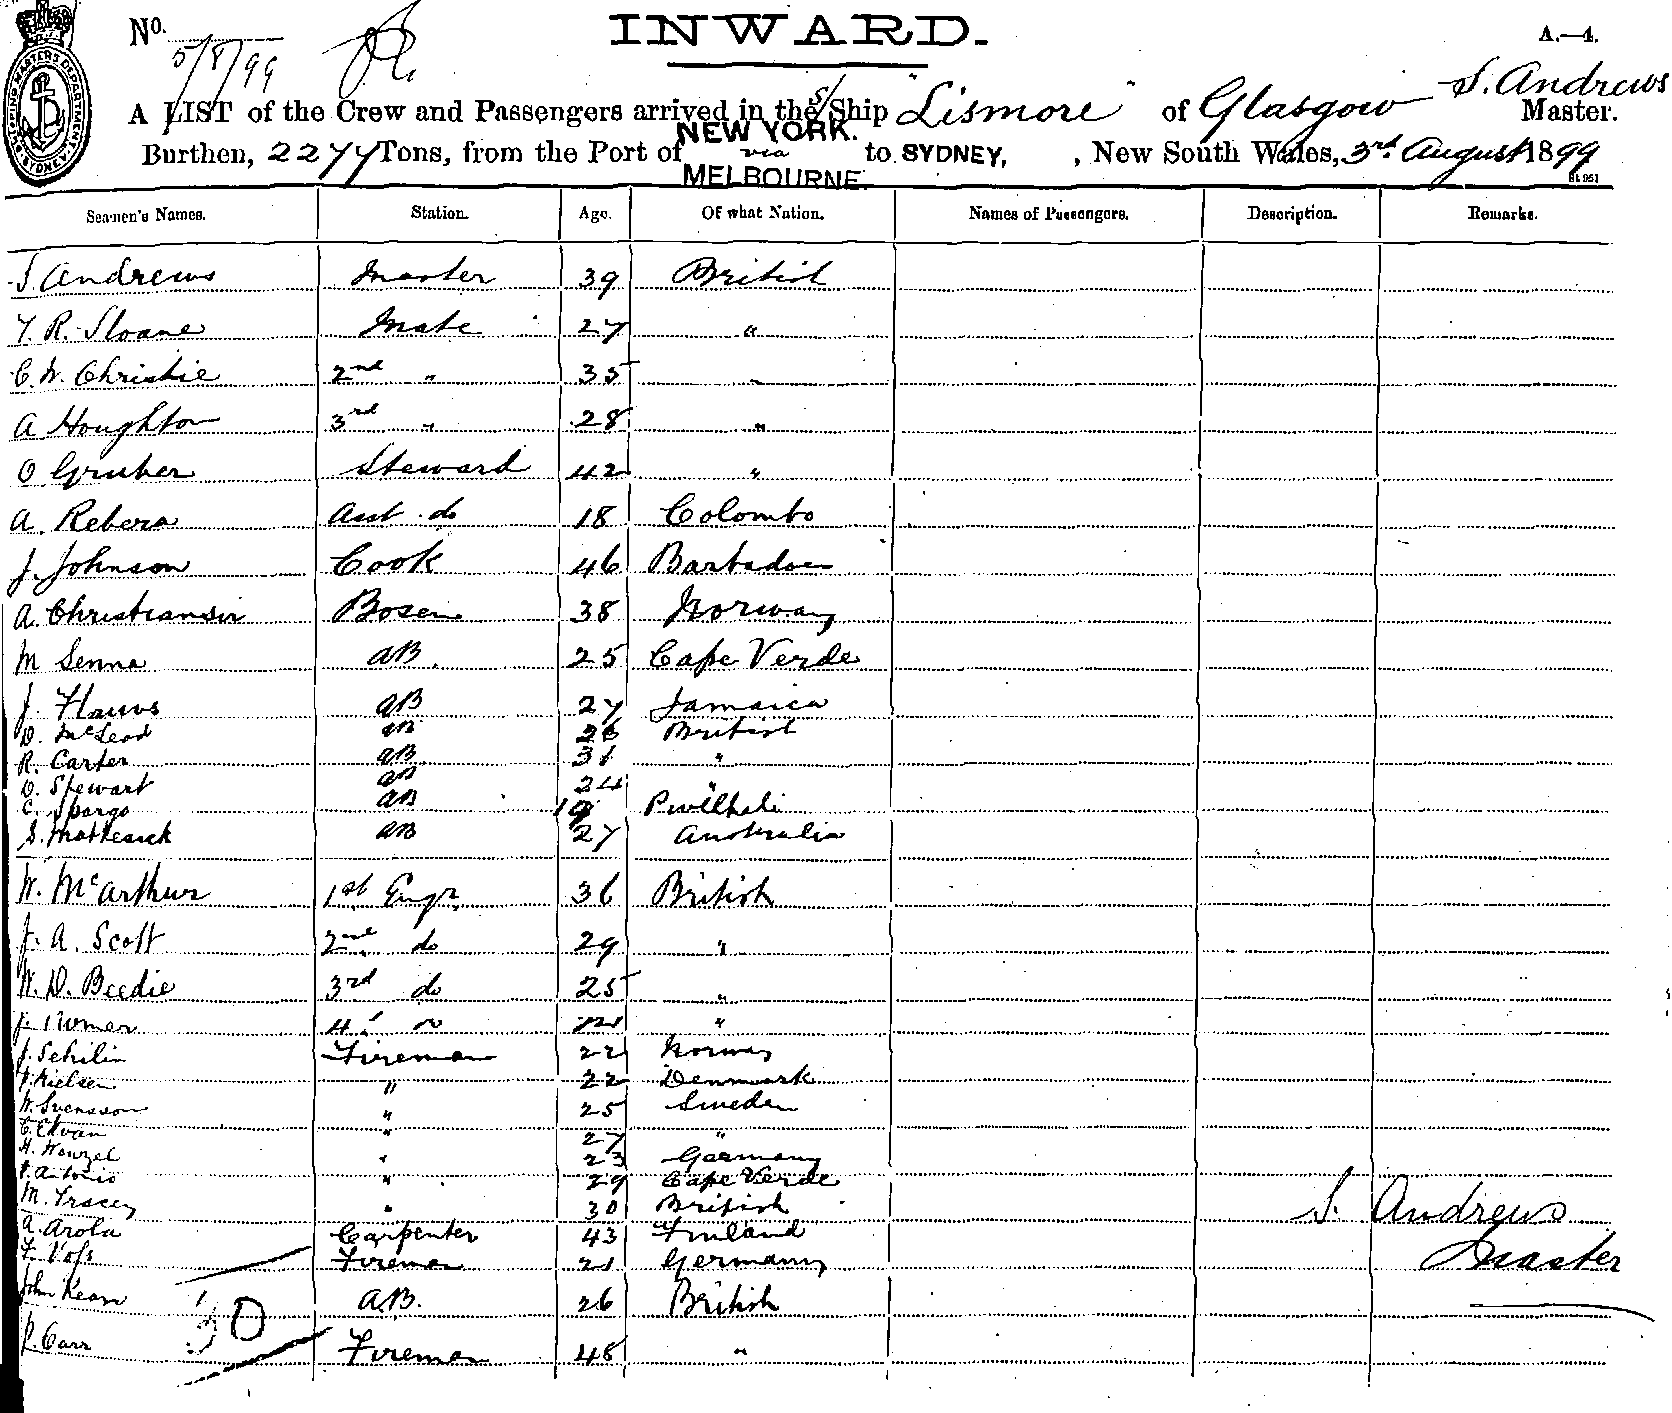 No. 5/8/99
INWARD.
A.—4.
S. Andrews
A LIST of the Crew and Passengers arrived in the S/Ship "Lismore" of Glasgow Master.
Burthen, 2277 Tons, from the Port of NEW YORK. via MELBOURNE to SYDNEY, , New South Wales, 3rd August 1899
Seamen's Names. Station. Age. Of what Nation. Names of Passengers. Description. Remarks.
S. Andrews Master 39 British
T. R. Sloane Mate 27 "
C. W. Christie 2nd " 35 "
A Houghton 3rd " 28 "
O Gruber Steward 42 "
A. Rebera Asst do 18 Colombo
J. Johnson Cook 46 Barbadoes
A. Christiansen Bosen 38 Norway
M Senna AB. 25 Cape Verde
J. AB 27 Jamaica
D. McLeod AB 26 British
R. Carter AB 31 "
D. Stewart AB 24 "
C. Spargo AB 19 Pwllheli
S. AB 27 Australia
W. McArthur 1st Engr. 36 British
J. A. Scott 2nd do 29 "
W. D. Beedie 3rd do 25 "
J. 4th do 21 "
J. Sehilin Fireman 22 Norway
Nielsen " 22 Denmark
W. Svensson " 25 Sweden
C. " 27 "
H. Wenzel " 23 Germany
P. Antonio " 29 Cape Verde
M. Tracey " 30 British
A. Arola Carpenter 43 Finland
F. Voss Fireman 21 Germany
John Kean A.B. 26 British
P. Carr Fireman 48 "
S. Andrews
Master
30